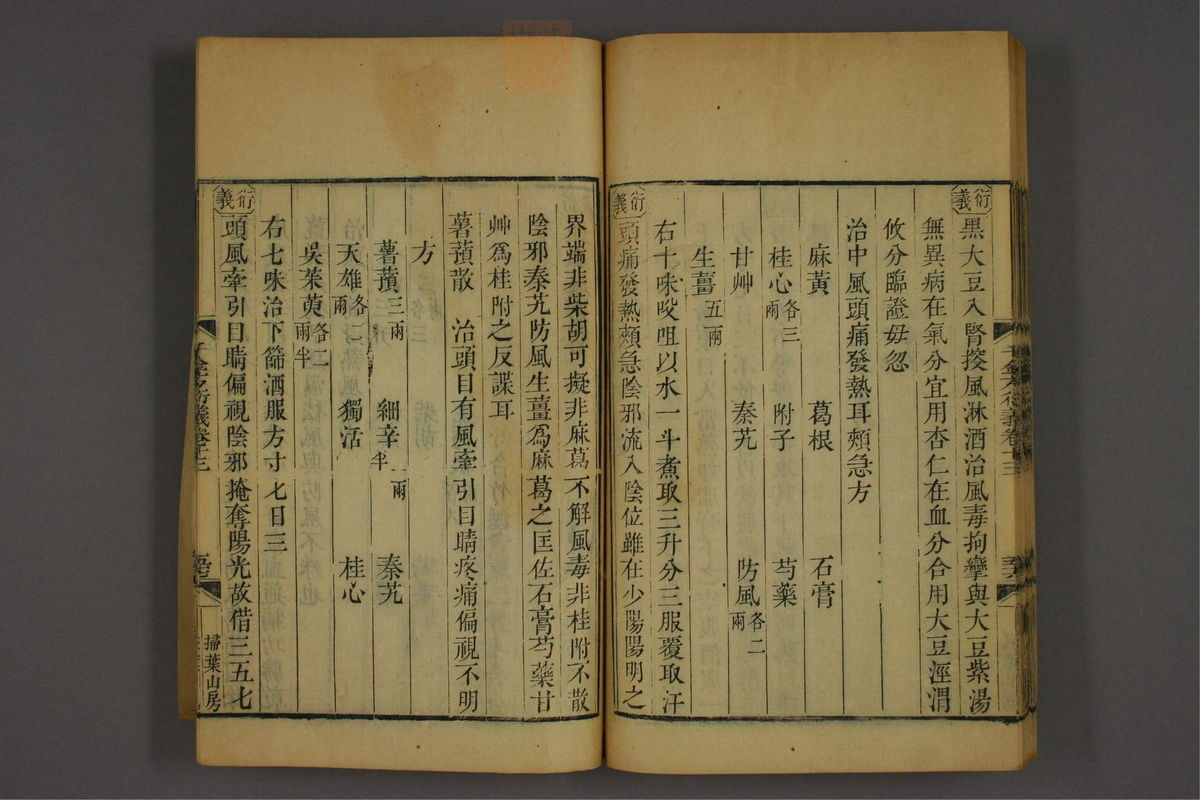 衍義
黑大豆入腎搜風淋酒治風毒拘攣與大豆紫湯
無異病在氣分宜用杏仁在血分合用大豆涇渭
攸分臨證毋忽
治中風頭痛發熱耳頰急方
麻黃 葛根 石膏
桂心各三兩 附子 芍藥
甘艸 秦艽 防風各二兩
生薑五兩
右十味㕮咀以水一斗煮取三升分三服覆取汗
衍義
頭痛發熱頰急陰邪流入陰位雖在少陽陽明之
界端非柴胡可擬非麻葛不解風毒非桂附不散
陰邪秦艽防風生薑爲麻葛之匡佐石膏芍藥甘
艸爲桂附之反諜耳
薯蕷散 治頭目有風牽引目睛疼痛偏視不明
方
薯蕷三兩 細辛一兩半 秦艽
天雄各二兩 獨活 桂心
吳茱萸各二兩半
右七味治下篩酒服方寸七日三
衍義
頭風牽引目睛偏視陰邪掩奪陽光故借三五七
千金方衍義卷十三
掃葉山房